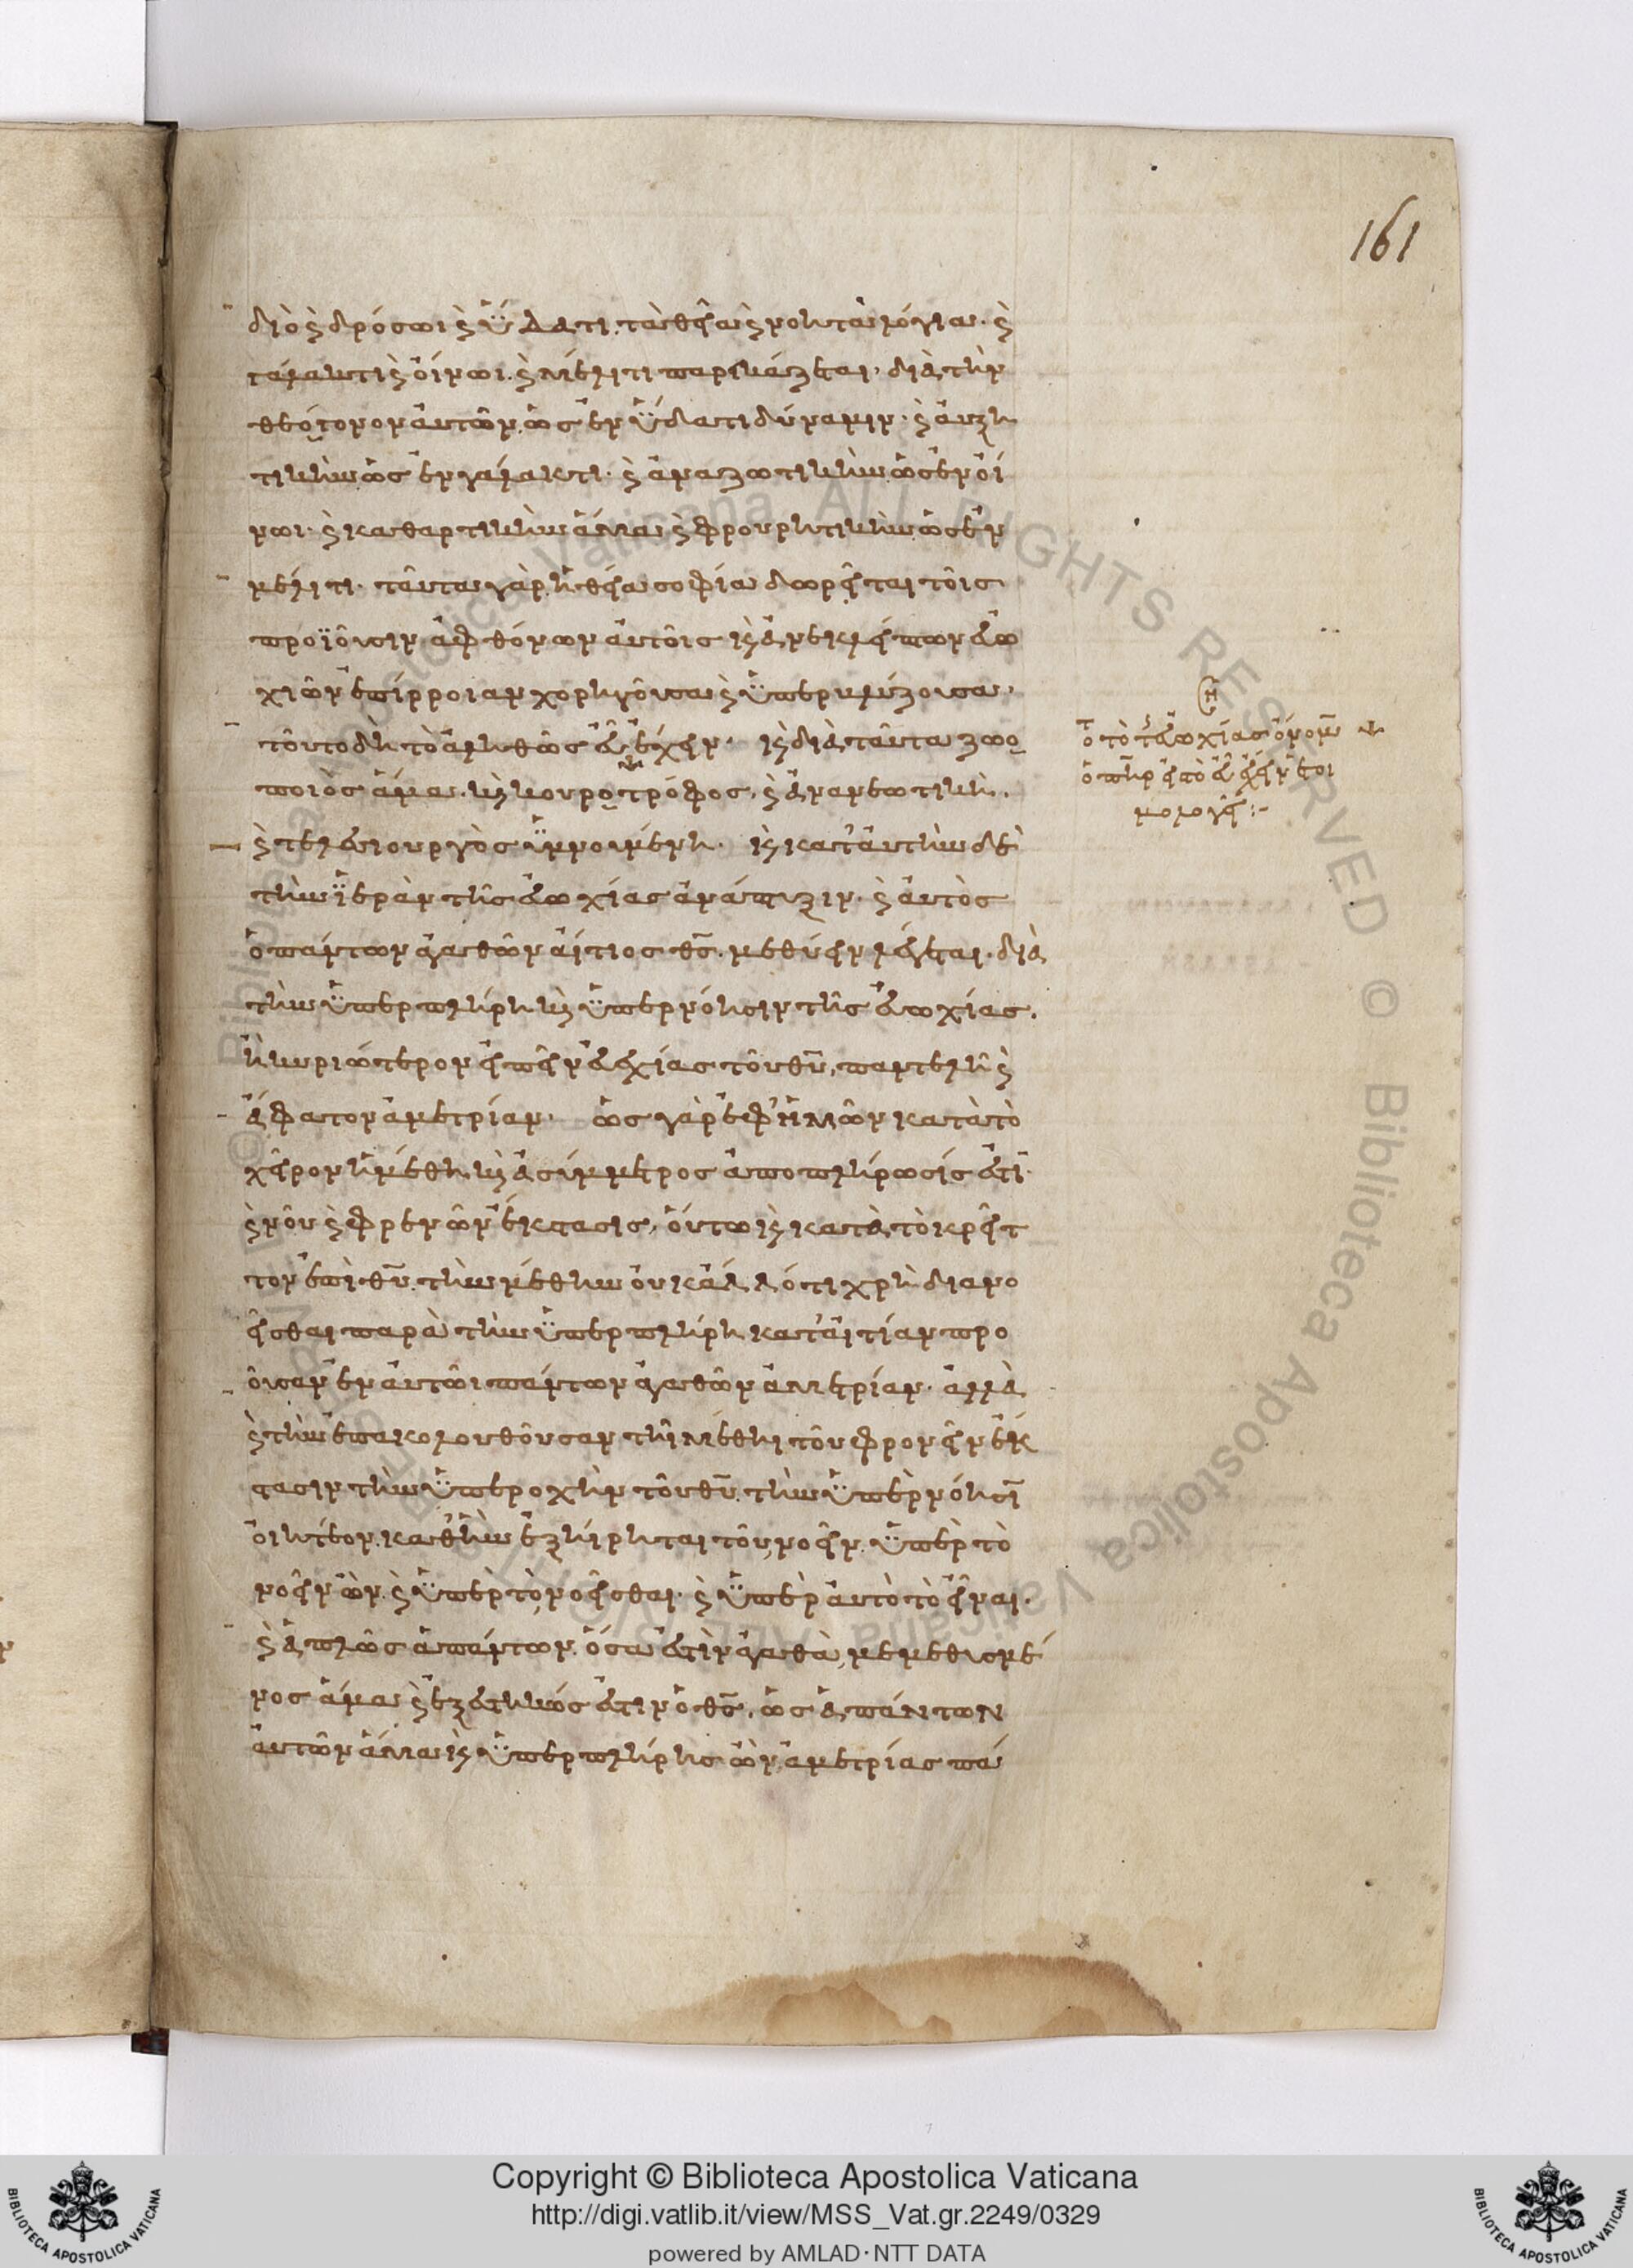 161
διὸ καὶ δρόσωι καὶ ὕδατι τὰ θεῖα καὶ νοητὰ λόγια· καὶ
γάλακτι καὶ οἴνωι. καὶ μέλιτι παρεικάζεται· διὰ τὴν
θεότονον αὐτῶν ὡς ἐν ὕδατι δύναμιν· καὶ αὐξη
τικὴν ὡς ἐν γάλακτι· καὶ ἀναζωτικὴν ὡς ἐν οἴ
νωι· καὶ καθαρτικὴν ἅμα καὶ φρουρητικὴν ὡς ἐν
μέλιτι. ταῦτα γὰρ ἡ θεία σοφία δωρεῖται τοῖς
προϊοῦσιν ἀφθόνων αὐτοῖς καὶ ἀνεκλείπων εὐω
χιῶν ἐπίρροιαν χορηγοῦσα καὶ ὑπερβλύζουσα.
τοῦτο δὴ τὸ ἀληθῶς εὐωχεῖν· καὶ διὰ ταῦτα ζωο
ποιὸς ἅμα καὶ κουροτρόφος καὶ ἀνανεωτικὴ.
καὶ τελειουργὸς ὑμνουμένη· καὶ κατ' αὐτὴν δὲ
τὴν ἱερὰν τῆς εὐωχίας ἀνάπτυξιν· καὶ αὐτὸς
ὁ πάντων ἀγαθῶν αἴτιος θς. μεθύειν λέγεται. διὰ
τὴν ὑπερπλήρη καὶ ὑπὲρ νόησιν τῆς εὐωχίας.
ἢ κυριώτερον εἰπεῖν εὐεξίας τοῦ θυ, παντελῆ καὶ
ἄφατον ἀμετρίαν· ὡς γὰρ ἐφ' ἡμῶν κατὰ τὸ
χεῖρον ἡ μέθη καὶ ἀσύμμετρος ἀποπλήρωσίς ἐστι
καὶ νοῦ καὶ φρενῶν ἔκστασις, οὕτω καὶ κατὰ τὸ κρεῖτ
τον ἐπὶ θυ. τὴν μέθην οὐκ ἄλλό τι χρὴ διανο
εῖσθαι παρὰ τὴν ὑπερπλήρη κατ' αἰτίαν προ
οῦσαν ἐν αὐτῶι πάντων ἀγαθῶν ἀμετρίαν· ἀλλὰ
καὶ τὴν ἐπακολουθοῦσαν τῆι μέθηι τοῦ φρονεῖν ἔκ
στασιν τὴν ὑπεροχὴν τοῦ θυ. τὴν ὑπὲρ νόησιν
οἰητέον. καθ' ἣν ἐξήρηται τοῦ νοεῖν. ὑπὲρ τὸ
νοεῖν ὢν. καὶ ὑπὲρ τὸ νοεῖσθαι· καὶ ὑπὲρ αὐτὸ τὸ εἶναι.
καὶ ἁπλῶς ἁπάντων. ὅσα ἐστὶν ἀγαθὰ μεμεθυσμέ
νος ἅμα καὶ ἐξεστηκώς ἐστιν ὁ θς. ὡς ἁπάντων
αὐτῶν ἅμα καὶ ὑπερπλήρης ὢν ἀμετρίας πά
Copyright © Biblioteca Apostolica Vaticana
http://digi.vatlib.it/view/MSS_Vat.gr.2249/0329
powered by AMLAD·NTT DATA